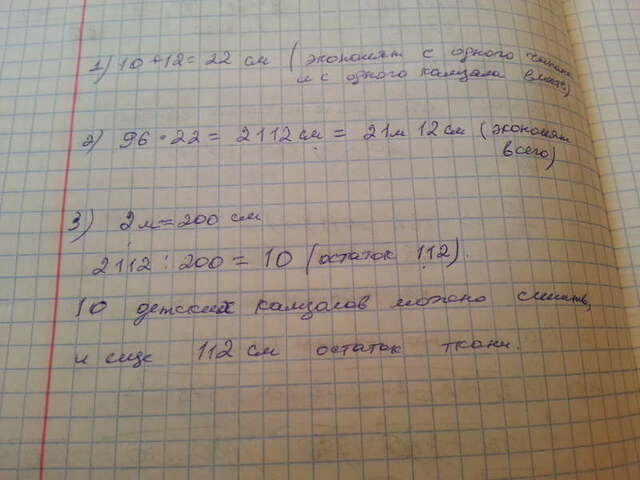 1) 10 + 12 = 22 см (экономят с одного
и с одного камзола вместе)
2) 96 · 22 = 2112 см = 21м 12 см (экономят
всего)
3) 2 м = 200 см
2112 : 200 = 10 (остаток 112).
10 детских камзолов можно сшить,
и еще 112 см остаток ткани.